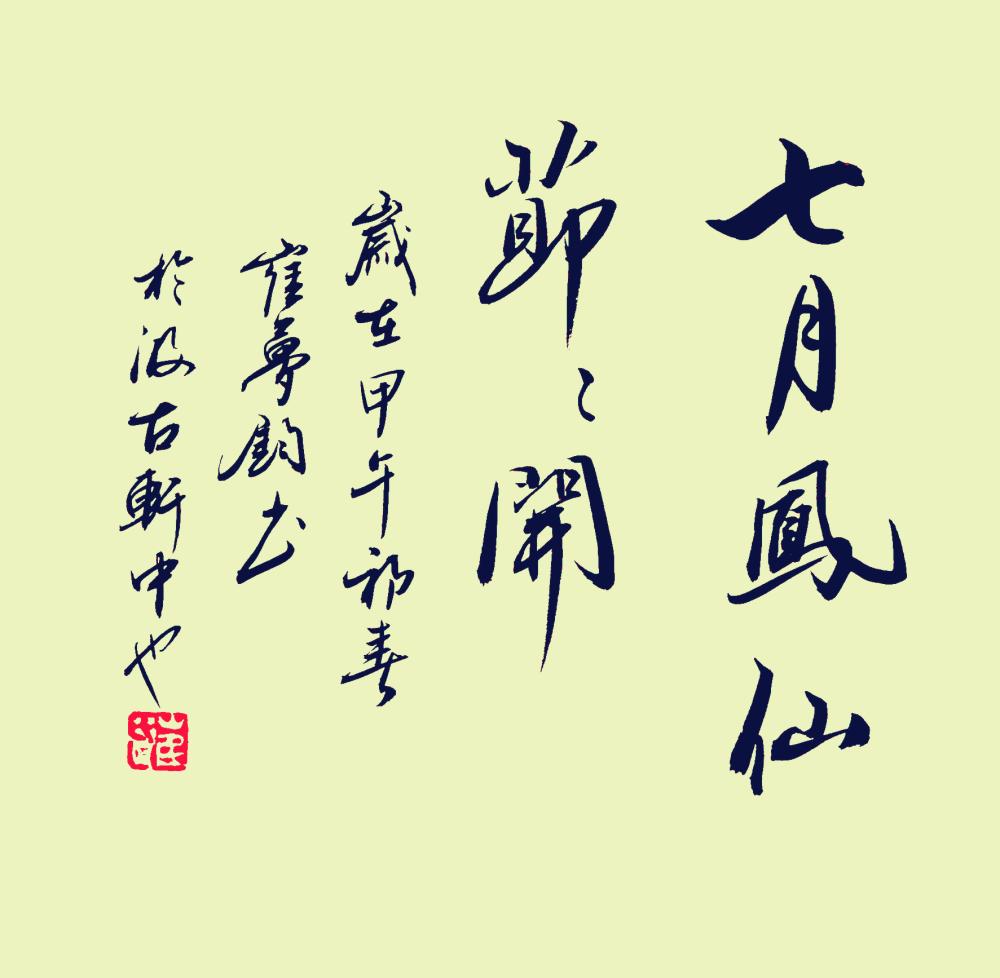 七月鳳仙
節〻開
歲在甲午初春
崔夢鈞书
於汲古軒中也
崔